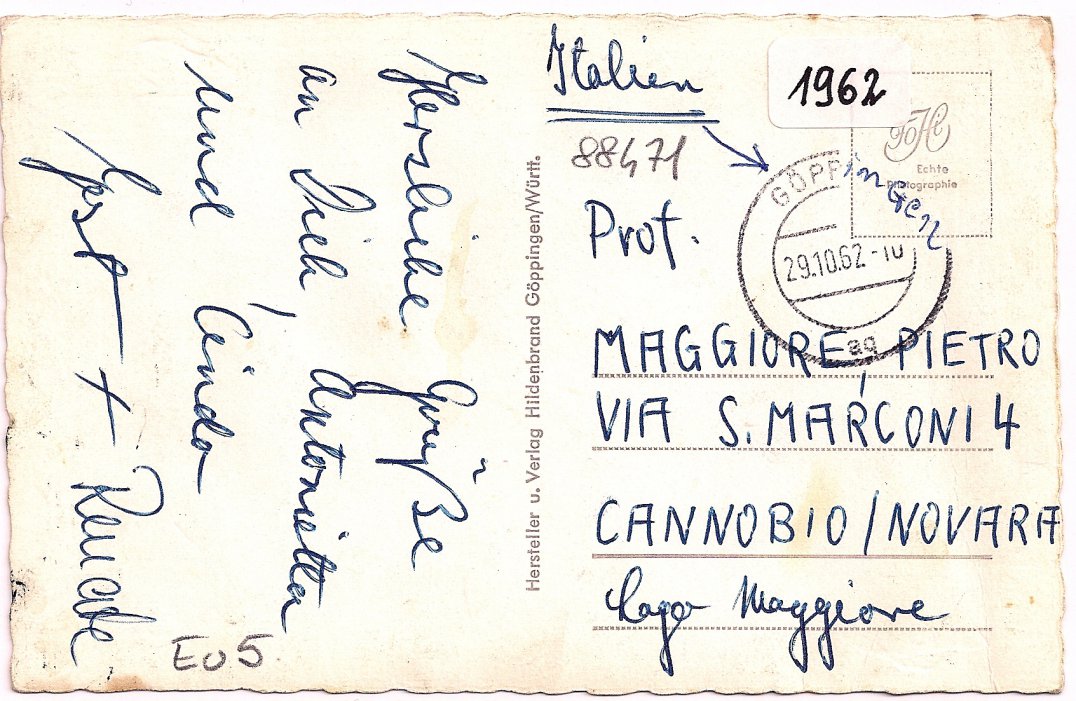 Herzliche Grüße
an Dich, Antonietta
und Linda
+ Renate
Eu5
Hersteller u. Verlag Hildenbrand Göppingen/Württ.
Italien
1962
88471
Echte
Photographie
GÖPPingen
29.10.62-10
ag
Prof.
MAGGIORE, PIETRO
VIA S. MARCONI 4
CANNOBIO/NOVARA
Lago Maggiore